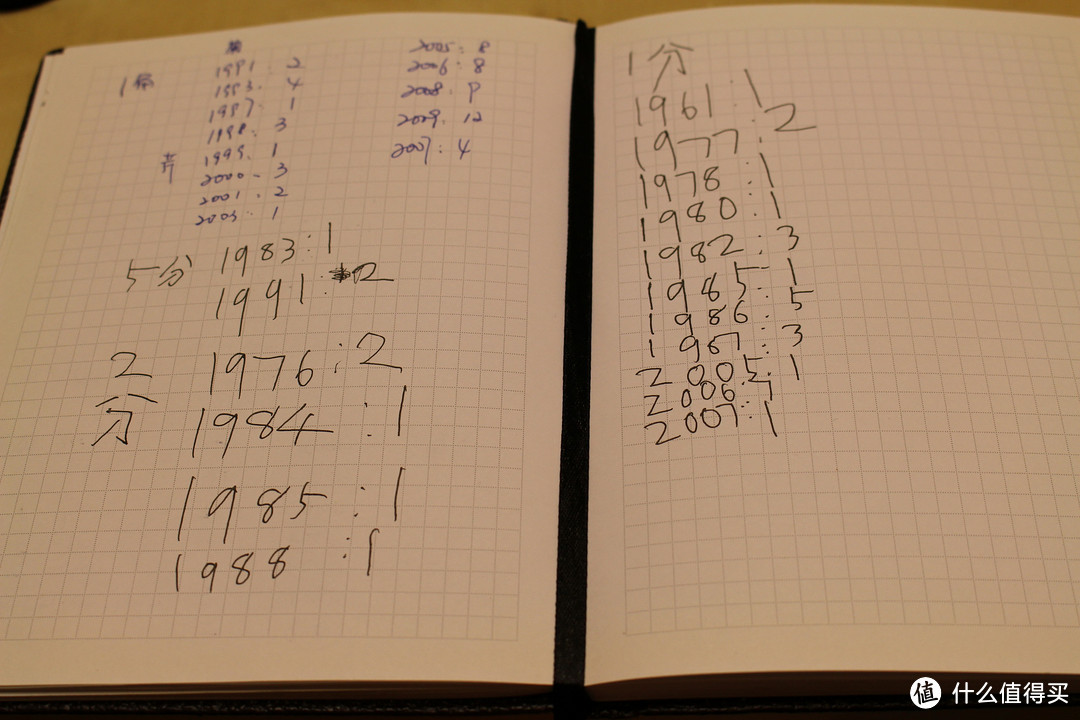 1角
菊
1991:2
1993:4
1997:1
1998:3
1999:1
2000:3
2001:2
2003:1
2005:8
2006:8
2008:9
2009:12
2007:4
5分
1983:1
1991:2
2分
1976:2
1984:1
1985:1
1988:1
1分
1961:1
1977:2
1978:1
1980:1
1982:3
1985:1
1986:5
1987:3
2005:1
2006:7
2007:1
值 什么值得买